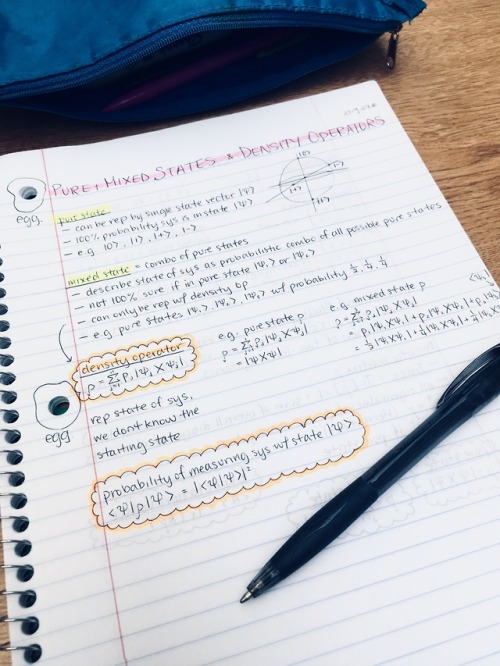 PURE + MIXED STATES & DENSITY OPERATORS
egg
pure state
- can be rep by single state vector |ψ⟩
- 100% probability sys is in state |ψ⟩
- e.g. |0⟩, |1⟩, |+⟩, |-⟩
|0⟩
|-⟩
|+⟩
|1⟩
mixed state = combo of pure states
- describe state of sys as probabilistic combo of all possible pure states
- not 100% sure if in pure state |Ψ₁⟩ or |Ψ₂⟩
- can only be rep w/ density op
- e.g. pure states |Ψ₁⟩, |Ψ₂⟩, |Ψ₃⟩ w/ probability ½, ¼, ¼
density operator
e.g. pure state ρ
= |Ψ X Ψ|
e.g. mixed state ρ
egg
rep state of sys,
we dont know the
starting state
probability of measuring sys w/ state |Ψ⟩
⟨Ψ|ρ|Ψ⟩ = |⟨Ψ|Ψ⟩|²